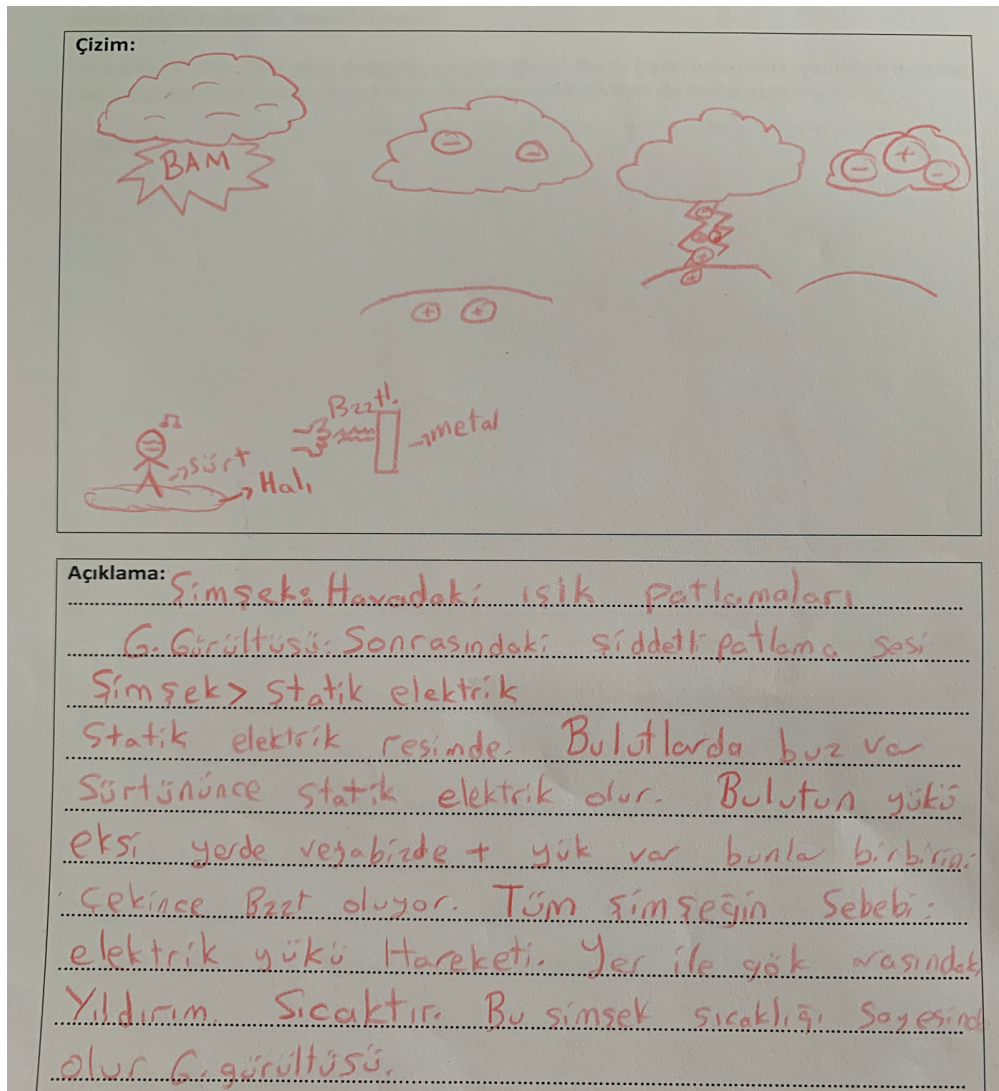 Çizim:
BAM
Bzzt.
metal
sürt
Halı
Açıklama: Şimşek: Havadaki ışik patlamaları
G. Gürültüsü: Sonrasındaki şiddetli patlama sesi
Şimşek > statik elektrik
Statik elektrik resimde. Bulutlarda buz var
Sürtününce statik elektrik olur. Bulutun yükü
eksi yerde veyabizde + yük var bunla birbirini
çekince Bzzt oluyor. Tüm şimşeğin Sebebi:
elektrik yükü Hareketi. Yer ile gök arasındaki
Yıldırım. Sıcaktır. Bu simsek sıcaklığı sayesinde
olur G. gürültüsü.